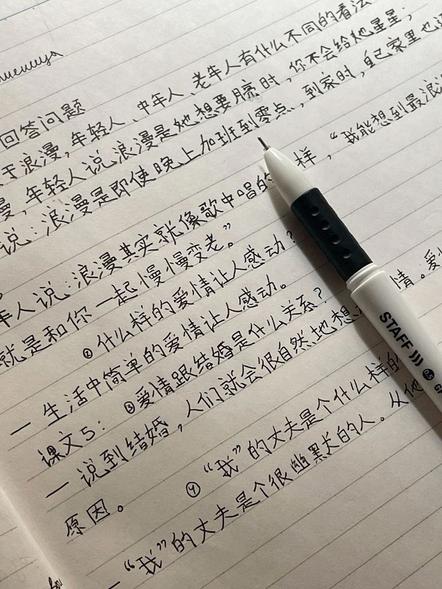 回答问题
于浪漫,年轻人、中年人、老年人有什么不同的看法
漫,年轻人说浪漫是她想要月亮时,你不会给她星星;
说:浪漫是即使晚上加班到零点,到家时,自己家里也
年人说:浪漫其实就像歌中唱的 样,“我能想到最浪
就是和你一起慢慢变老。”
② 什么样的爱情让人感动?
— 生活中简单的爱情让人感动。
课文5: ③ 爱情跟结婚是什么关系?
— 说到结婚,人们就会很自然地想 情。爱
原因。 ④ “我”的丈夫是个什么样的
— “我”的丈夫是个很幽默的人。从他
STAFF